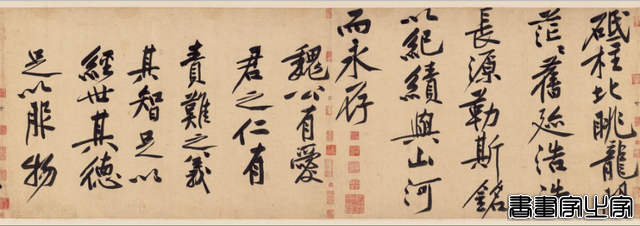 砥柱北眺龍門
茫〻舊迹浩浩
長源勒斯銘
以紀績與山河
而永存
魏公有愛
君之仁有
責難之義
其智足以
經世其德
足以服物
書畫家之家